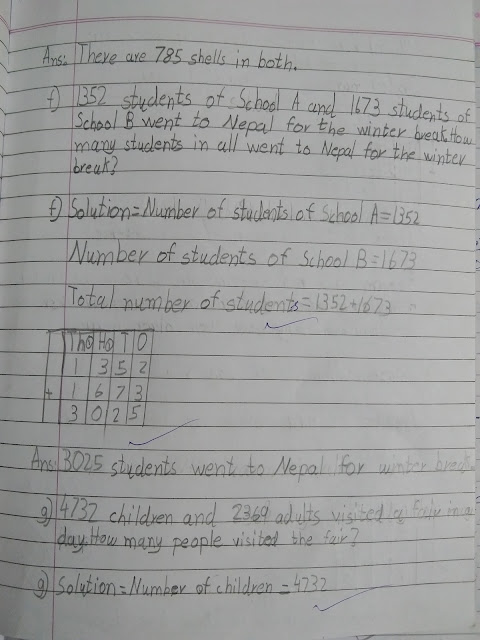 Ans: There are 785 shells in both.
f) 1352 students of School A and 1673 students of
School B went to Nepal for the winter break. How
many students in all went to Nepal for the winter
break?
f) Solution = Number of students of School A = 1352
Number of students of School B = 1673
Total number of students = 1352 + 1673
Th H T O
1 3 5 2
+ 1 6 7 3
3 0 2 5
Ans: 3025 students went to Nepal for winter break.
g) 4732 children and 2369 adults visited a fair in a
day. How many people visited the fair?
g) Solution = Number of children = 4732